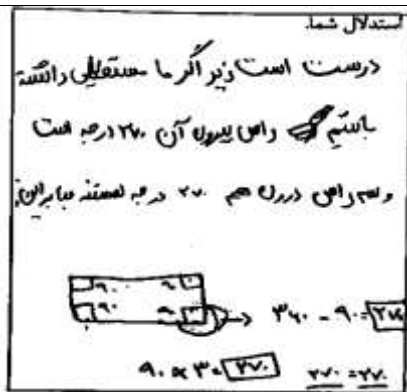 استدلال شما.
درست است زیرا اگر ما مستطیلی داشته
باشیم راس بیرون آن ۲۷۰ درجه است
و سه راس درون هم ۲۷۰ درجه هستند بنابراین
۹۰ ۹۰
۹۰ ۹۰
۳۶۰ - ۹۰ = ۲۷۰
۹۰ × ۳ = ۲۷۰
۲۷۰ = ۲۷۰